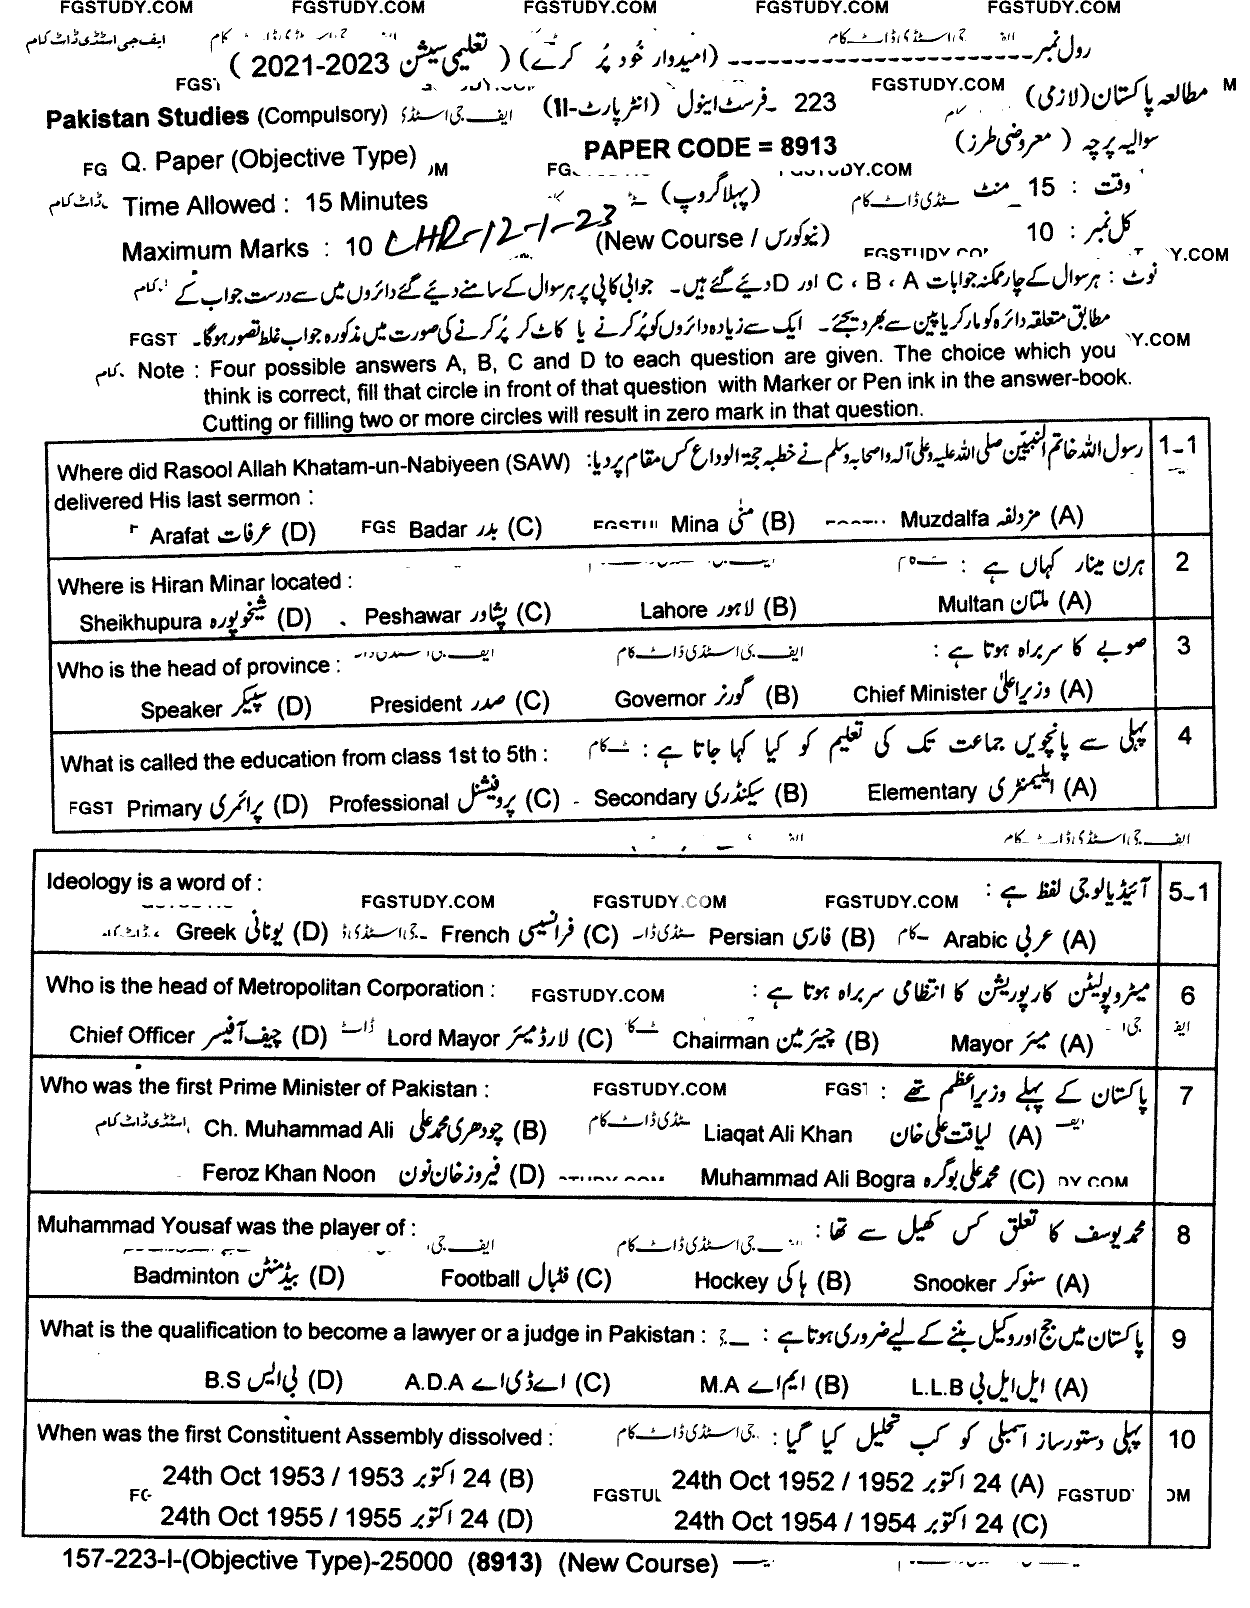 FGSTUDY.COM FGSTUDY.COM FGSTUDY.COM FGSTUDY.COM FGSTUDY.COM
رول نمبر ---------------------- (امیدوار خود پُر کرے) ( تعلیمی سیشن 2023-2021 )
Pakistan Studies (Compulsory) 223 ۔ فرسٹ اینول (انٹر پارٹ-II) FGSTUDY.COM مطالعہ پاکستان (لازمی)
Q. Paper (Objective Type) PAPER CODE = 8913 سوالیہ پرچہ ( معروضی طرز)
Time Allowed : 15 Minutes (پہلا گروپ) وقت : 15 منٹ
Maximum Marks : 10 LHR-12-1-23 (New Course / نیو کورس) کل نمبر : 10
نوٹ : ہر سوال کے چار ممکنہ جوابات A ، B ، C اور D دیئے گئے ہیں۔ جوابی کاپی پر ہر سوال کے سامنے دیئے گئے دائروں میں سے درست جواب کے
مطابق متعلقہ دائرہ کو مارکر یا پین سے بھر دیجئے۔ ایک سے زیادہ دائروں کو پُر کرنے یا کاٹ کر پُر کرنے کی صورت میں مذکورہ جواب غلط تصور ہوگا۔
Note : Four possible answers A, B, C and D to each question are given. The choice which you
think is correct, fill that circle in front of that question with Marker or Pen ink in the answer-book.
Cutting or filling two or more circles will result in zero mark in that question.
1-1 رسول اللہ خاتم النبیین صلی اللہ علیہ وعلی آلہ واصحابہ وسلم نے خطبہ حجۃ الوداع کس مقام پر دیا:
Where did Rasool Allah Khatam-un-Nabiyeen (SAW)
delivered His last sermon :
(A) مزدلفہ Muzdalfa (B) منیٰ Mina (C) بدر Badar (D) عرفات Arafat
2 ہرن مینار کہاں ہے :
Where is Hiran Minar located :
(A) ملتان Multan (B) لاہور Lahore (C) پشاور Peshawar (D) شیخوپورہ Sheikhupura
3 صوبے کا سربراہ ہوتا ہے :
Who is the head of province :
(A) وزیراعلیٰ Chief Minister (B) گورنر Governor (C) صدر President (D) سپیکر Speaker
4 پہلی سے پانچویں جماعت تک کی تعلیم کو کیا کہا جاتا ہے :
What is called the education from class 1st to 5th :
(A) ایلیمنٹری Elementary (B) سیکنڈری Secondary (C) پروفیشنل Professional (D) پرائمری Primary
5-1 آئیڈیالوجی لفظ ہے :
Ideology is a word of :
FGSTUDY.COM FGSTUDY.COM FGSTUDY.COM
(A) عربی Arabic (B) فارسی Persian (C) فرانسیسی French (D) یونانی Greek
6 میٹروپولیٹن کارپوریشن کا انتظامی سربراہ ہوتا ہے :
Who is the head of Metropolitan Corporation : FGSTUDY.COM
(A) میئر Mayor (B) چیئرمین Chairman (C) لارڈ میئر Lord Mayor (D) چیف آفیسر Chief Officer
7 پاکستان کے پہلے وزیراعظم تھے :
Who was the first Prime Minister of Pakistan : FGSTUDY.COM
(A) لیاقت علی خان Liaqat Ali Khan (B) چودھری محمد علی Ch. Muhammad Ali
(C) محمد علی بوگرہ Muhammad Ali Bogra (D) فیروز خان نون Feroz Khan Noon
8 محمد یوسف کا تعلق کس کھیل سے تھا :
Muhammad Yousaf was the player of :
(A) سنوکر Snooker (B) ہاکی Hockey (C) فٹبال Football (D) بیڈمنٹن Badminton
9 پاکستان میں جج اور وکیل بننے کے لیے ضروری ہوتا ہے :
What is the qualification to become a lawyer or a judge in Pakistan :
(A) ایل ایل بی L.L.B (B) ایم اے M.A (C) اے ڈی اے A.D.A (D) بی ایس B.S
10 پہلی دستور ساز اسمبلی کو کب تحلیل کیا گیا :
When was the first Constituent Assembly dissolved :
(A) 24 اکتوبر 1952 / 24th Oct 1952 (B) 24 اکتوبر 1953 / 24th Oct 1953
(C) 24 اکتوبر 1954 / 24th Oct 1954 (D) 24 اکتوبر 1955 / 24th Oct 1955
157-223-I-(Objective Type)-25000 (8913) (New Course)